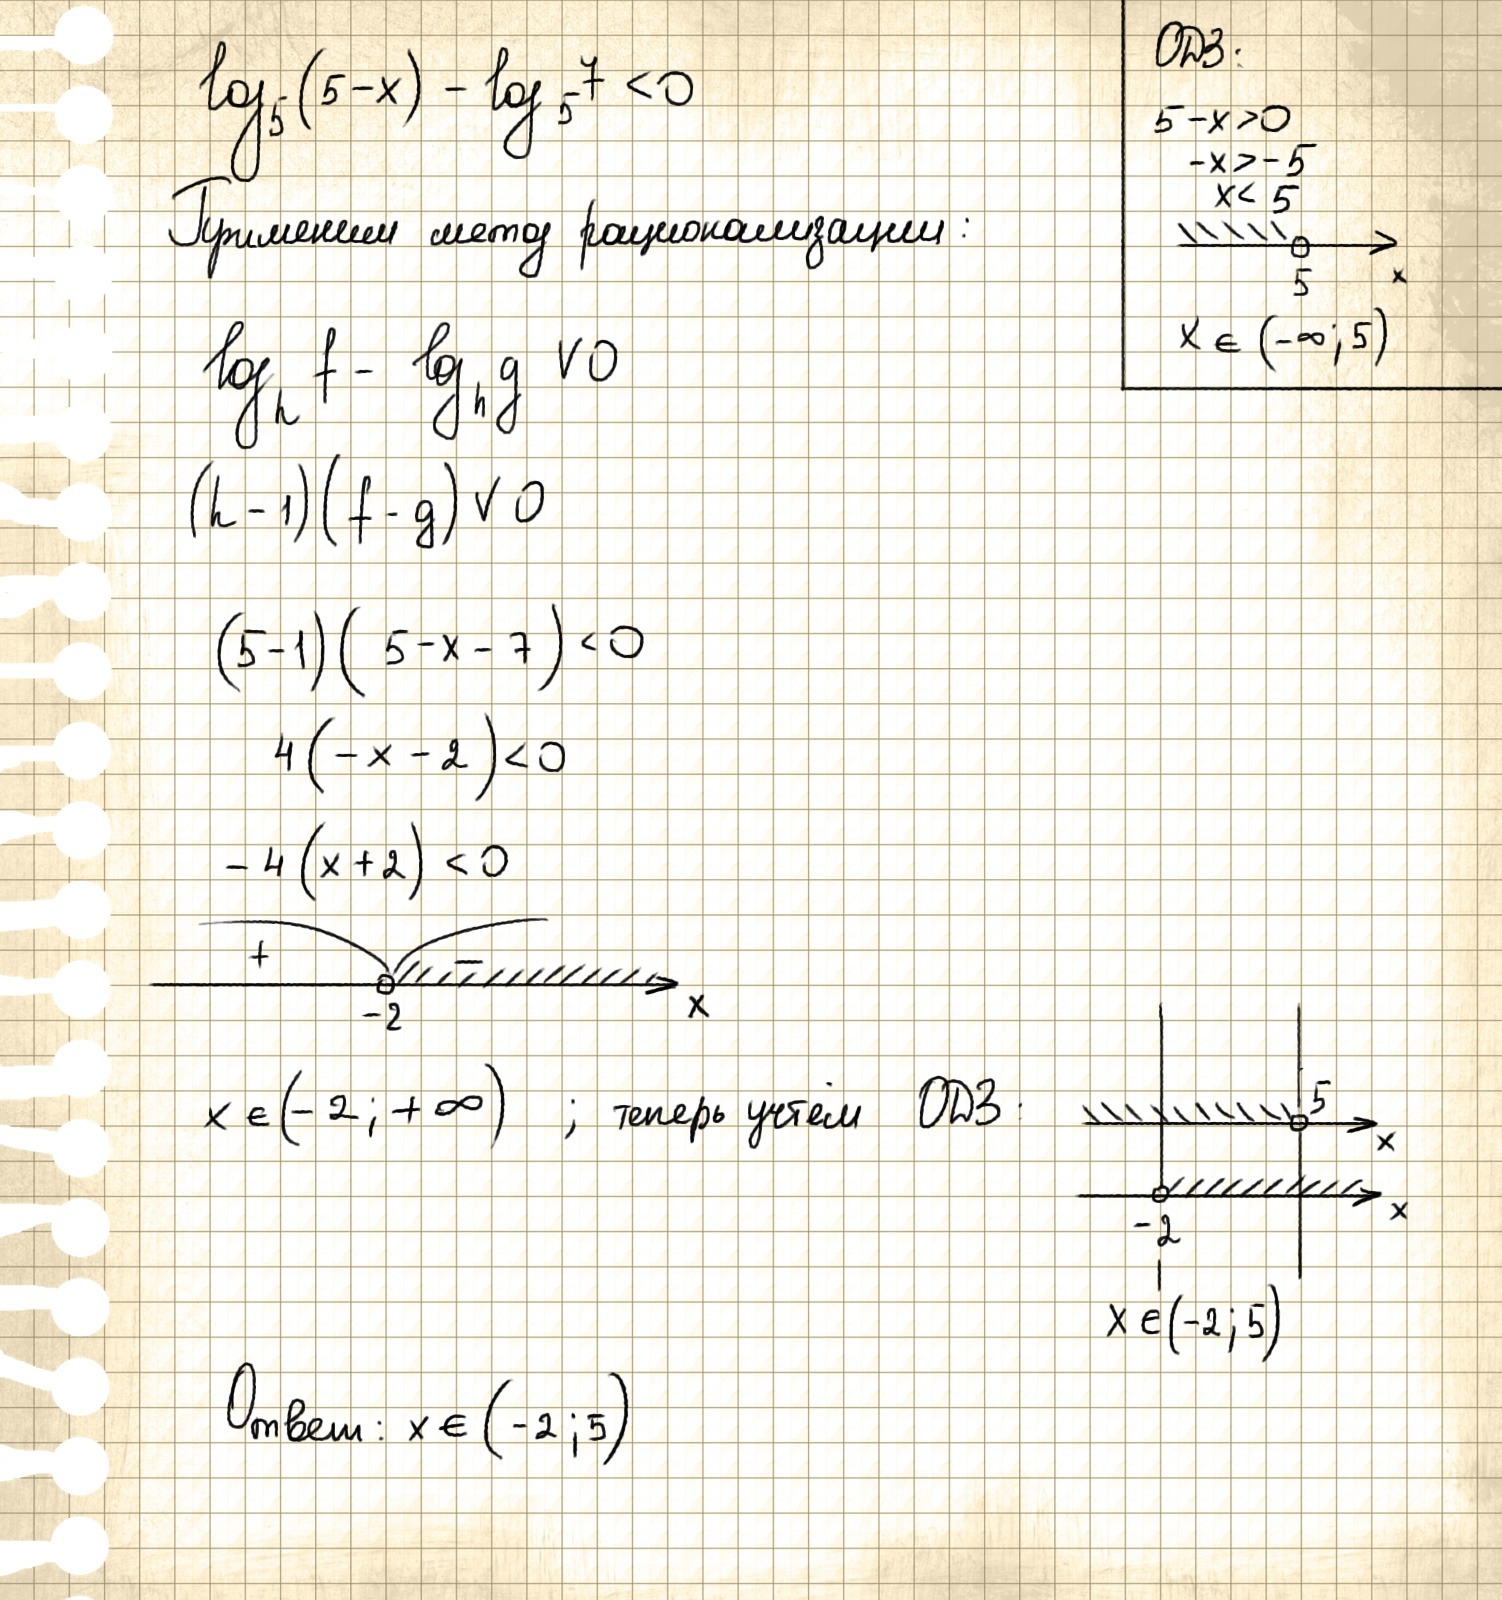 log₅(5-x) - log₅7 <0
Применим метод рационализации:
logₕ f - logₕ g ∨ 0
(h-1)(f-g) ∨ 0
(5-1)(5-x-7)<0
4(-x-2)<0
-4(x+2)<0
+ -
-2 x
x∈(-2;+∞) ; теперь учтём ОДЗ:
Ответ: x∈(-2;5)
ОДЗ:
5-x>0
-x>-5
x<5
5 x
x∈(-∞;5)
5
x
x
-2
x∈(-2;5)